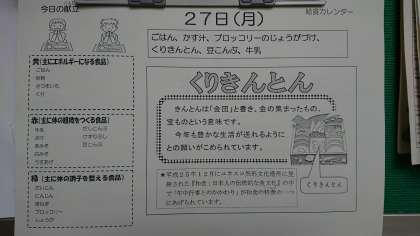 今日の献立
27日(月)
給食カレンダー
ごはん、かす汁、ブロッコリーのじょうがづけ、
くりきんとん、豆こんぶ、牛乳
黄(主にエネルギーになる食品)
ごはん
さつまいも
くり
赤(主に体の組織をつくる食品)
牛乳
だしこんぶ
けずりぶし
豆こんぶ
緑(主に体の調子を整える食品)
だいこん
にんじん
ブロッコリー
しょうが
くりきんとん
きんとんは「金団」と書き、金の集まったもの、
宝ものという意味です。
今年も豊かな生活が送れるように
との願いがこめられています。
くりきんとん
★平成25年12月にユネスコ無形文化遺産に
登録された『和食;日本人の伝統的な食文化』の中
で「年中行事とのかかわり」が和食の特徴の一つ
にあげられています。